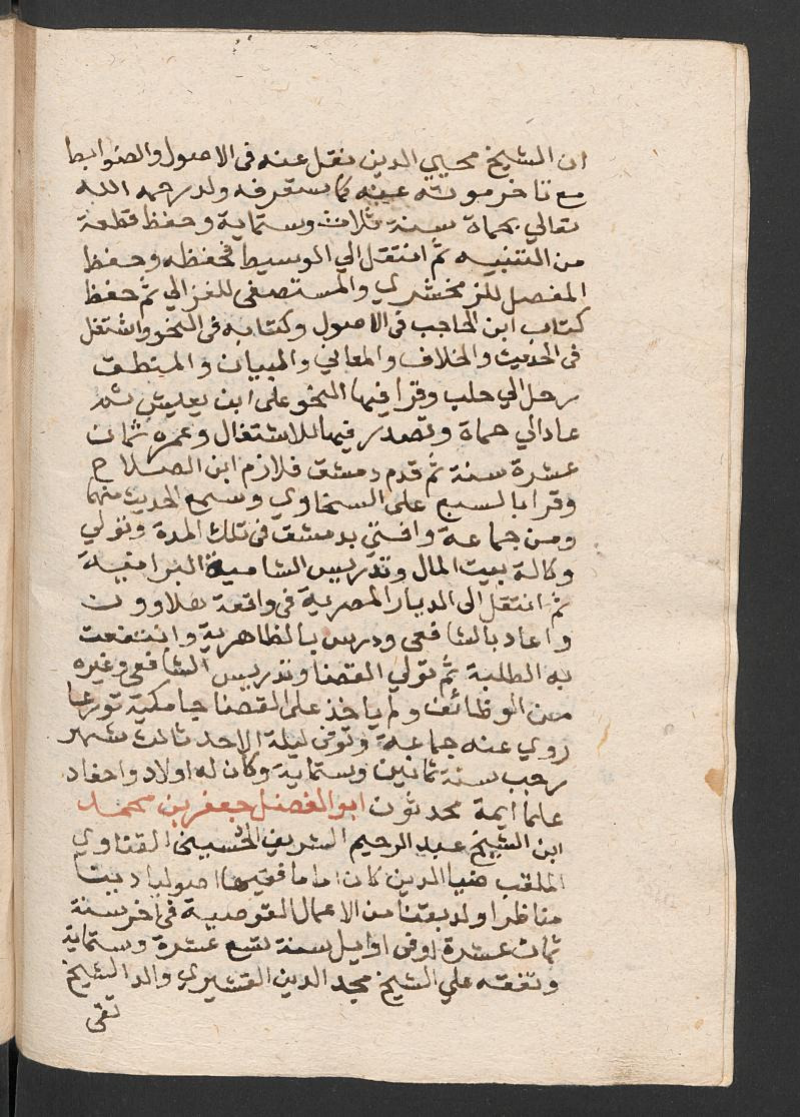 ان الشيخ محيي الدين نقل عنه في الاصول والضوابط
مع تاخر موته عنه كما ستعرفه ولد رحمه الله
تعالي بحماة سنة ثلاث وستماية وحفظ قطعة
من التنبيه ثم انتقل الي الوسيط فحفظه وحفظ
المفصل للزمخشري والمستصفى للغزالي ثم حفظ
كتاب ابن الحاجب في الاصول وكتابه في النحو واشتغل
في الحديث والخلاف والمعاني والبيان والمنطق
رحل الي حلب وقرا فيها النحو على ابن يعيش ثم
عاد الي حماة وتصدر فيها للاشتغال وعمره ثمان
عشرة سنة ثم قدم دمشق فلازم ابن الصلاح
وقرا بالسبع على السخاوي وسمع الحديث منهما
ومن جماعة وافتي بدمشق في تلك المدة وتولي
وكالة بيت المال وتدريس الشامية البرانية
ثم انتقل الى الديار المصرية في واقعة هلاوون
واعاد بالشافعى ودرس بالظاهرية وانتفعت
به الطلبة ثم تولي القضا وتدريس الشافعى وغيره
من الوظائف ولم ياخذ على القضا جامكية تورعا
روي عنه جماعة وتوفى ليلة الاحد ثالث شهر
رجب سنة ثمانين وستماية وكان له اولاد واحفاد
علما ايمة محدثون ابو الفضل جعفر بن محمد
ابن الشيخ عبد الرحيم الشريف الحسيني القناوي
الملقب ضيا الدين كان اماما فقيها اصوليا اديبا
مناظرا ولد بقنا من الاعمال القوصية في اخر سنة
ثمان عشرة اوفى اوايل سنة تسع عشرة وستماية
وتفقه علي الشيخ مجد الدين القشيري والد الشيخ
تقى